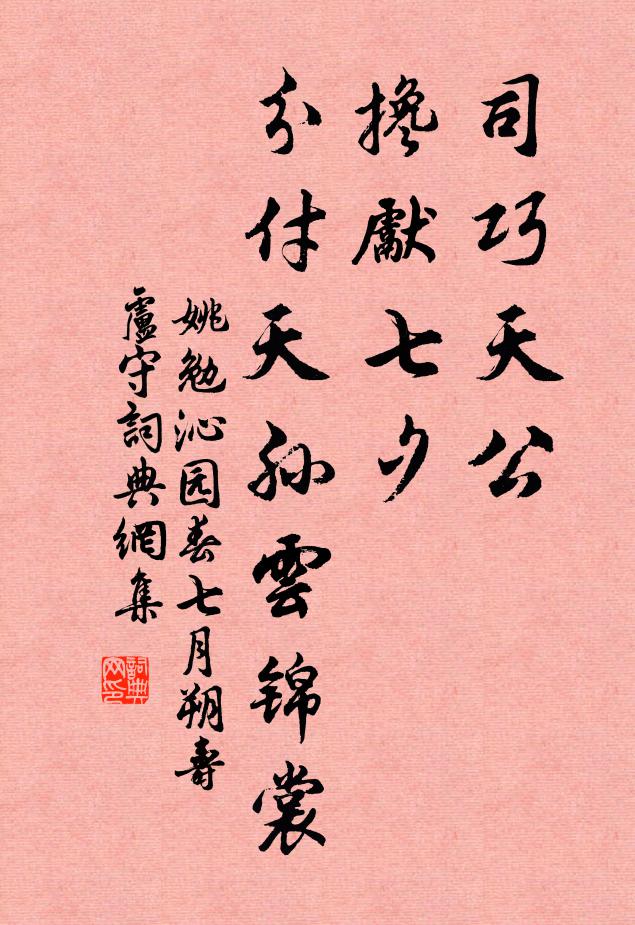 司巧天公
搀獻七夕
分付天孙雲錦裳
姚勉沁园春七月朔壽
盧守詞典網集
詞典
网印